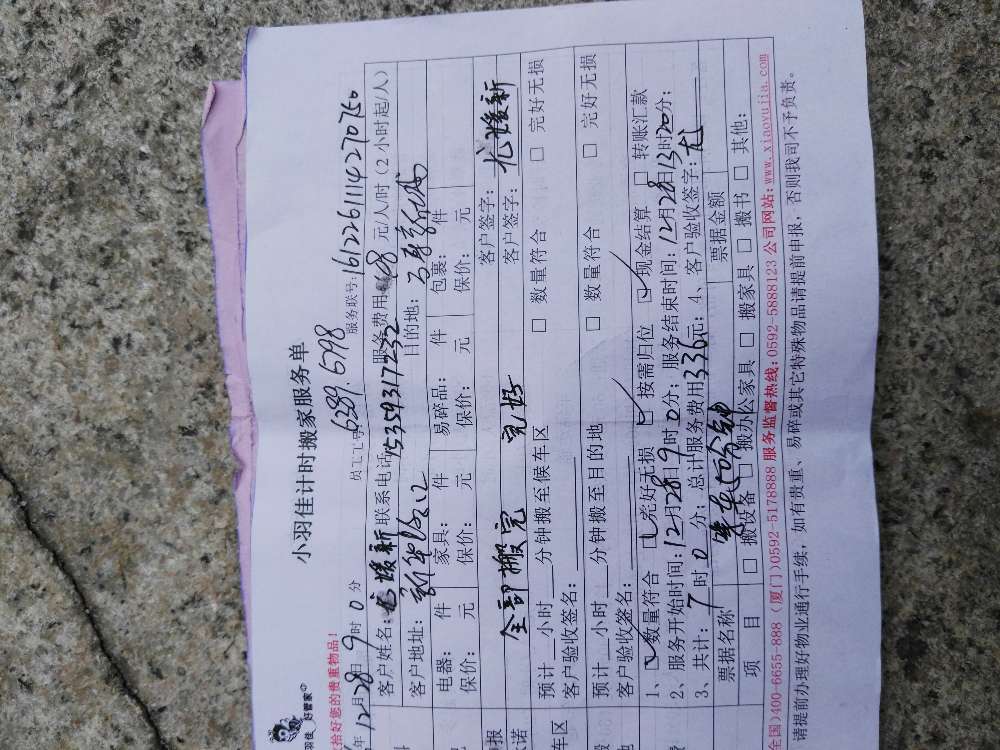 小羽佳计时搬家服务单
羽佳 好管家
拾好您的贵重物品！
年12月28日9时0分 员工工号6389.6798 服务联号:161226111427070750
客户姓名: 尤媛新 联系电话15359317232 服务费用:48元/人/时（2小时起/人）
客户地址: 目的地:
电器: 件 家具: 件 易碎品: 件 包裹: 件
保价: 元 保价: 元 保价: 元 保价: 元
客户签字:
全部搬完 完好 客户签字: 尤媛新
预计__小时__分钟搬至候车区 □ 数量符合 □ 完好无损
客户验收签名:
预计__小时__分钟搬至目的地 □ 数量符合 □ 完好无损
客户验收签名:
1、☑数量符合 ☑完好无损 ☑按需归位 ☑现金结算 □转账汇款
2、服务开始时间:12月28日9时0分; 服务结束时间:12月28日13时20分;
3、共计:7时0分; 总计服务费用336元; 4、客户验收签字: 尤
票据名称 票据金额
项目 □搬设备 □搬办公家具 □搬家具 □搬书 □其他:
全国)400-6655-888 (厦门)0592-5178888 服务监督热线:0592-5888123 公司网站:www.xiaoyujia.com
请提前办理好物业通行手续，如有贵重、易碎或其它特殊物品请提前申报，否则我司不予负责。